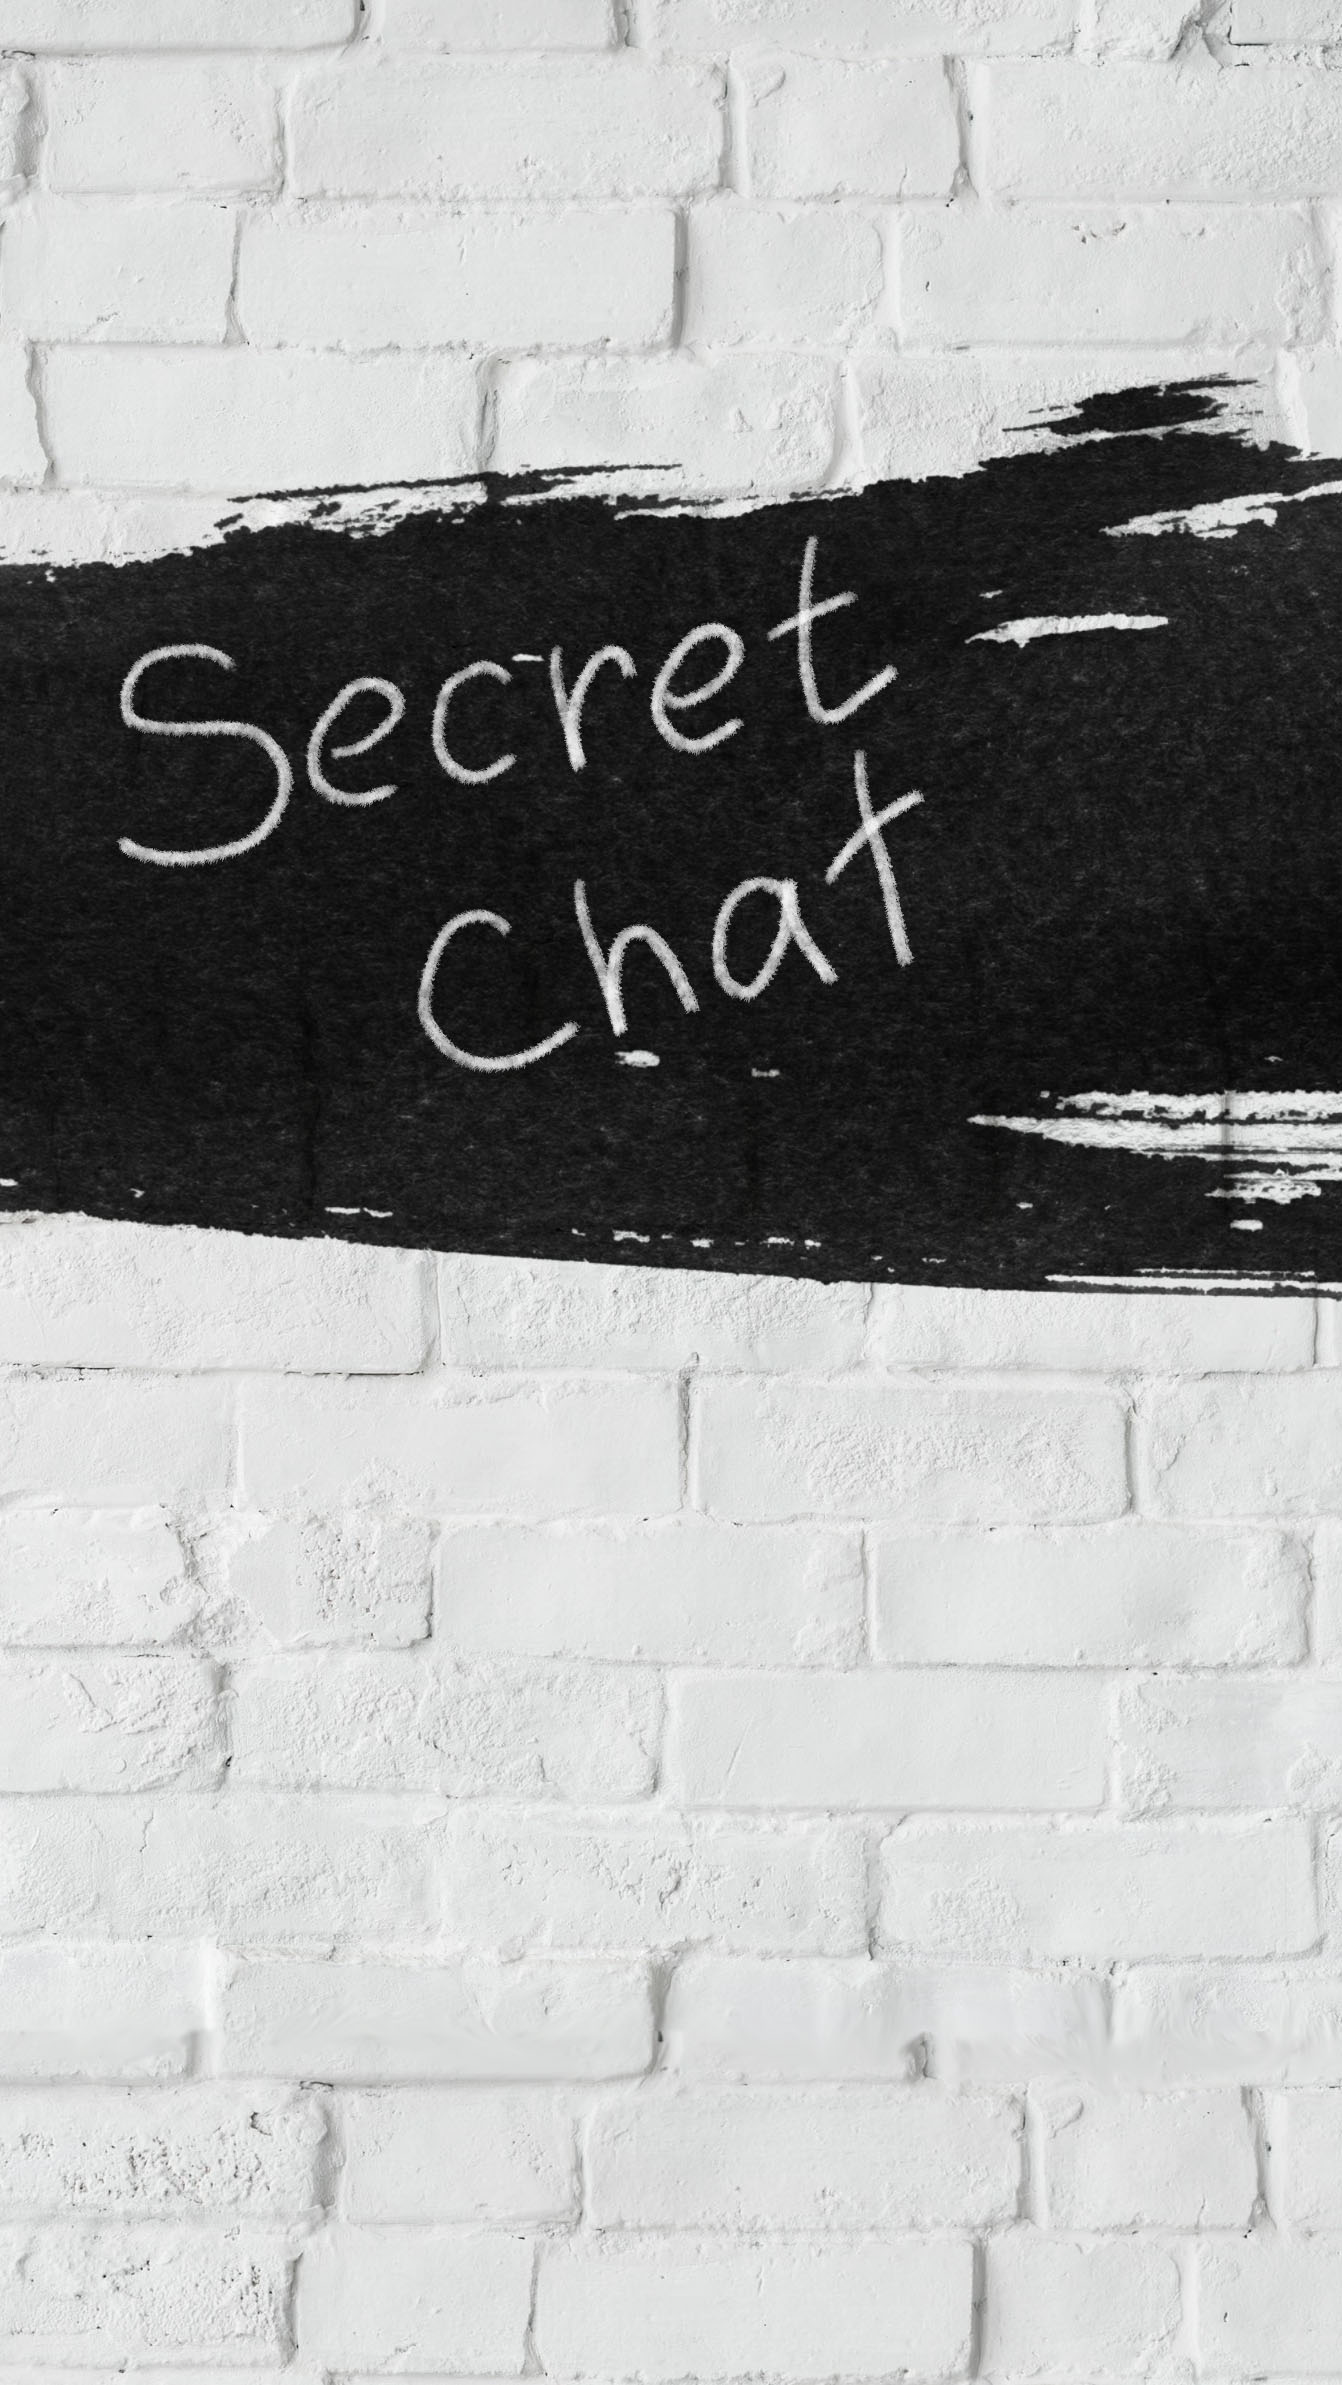 Secret
Chat